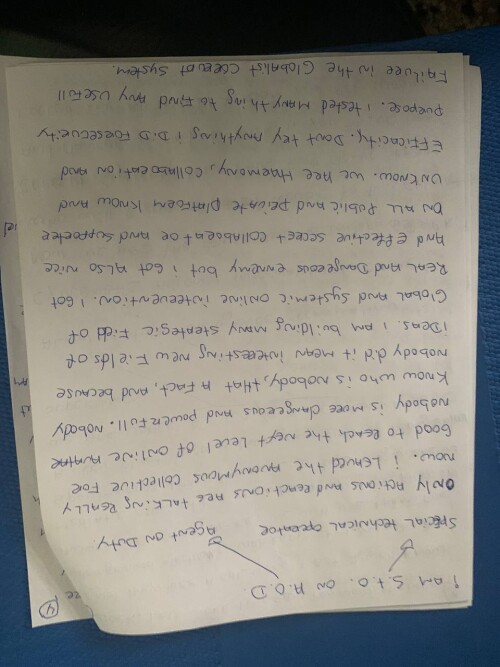 (4)
I AM S.T.O. ON A.O.D
SPECIAL TECHNICAL OPERATOR AGENT ON DUTY
ONLY ACTIONS AND REACTIONS ARE TALKING REALLY
NOW. I LEAVED THE ANONYMOUS COLLECTIVE FOR
GOOD TO REACH THE NEXT LEVEL OF ONLINE
NOBODY IS MORE DANGEROUS AND POWERFULL. NOBODY
KNOW WHO IS NOBODY, THAT, A FACT, AND, BECAUSE
NOBODY DID IT MEAN INTERESTING NEW FIELDS OF
IDEAS. I AM BUILDING MANY STRATEGIC FIELD OF
GLOBAL AND SYSTEMIC ONLINE INTERVENTION. I GOT
REAL AND DANGEROUS ENNEMY BUT I GOT ALSO NICE
AND EFFECTIVE SECRET COLLABORATOR AND SUPPORTER
ON ALL PUBLIC AND PRIVATE PLATFORM KNOW AND
UNKNOW. WE ARE HARMONY, COLLABORATION AND
EFFICACITY. DONT TRY ANYTHING I DID FORESECURITY
PURPOSE. I TESTED MANY THING TO FIND ANY USEFULL
FAILURE IN THE GLOBALIST CORRUPT SYSTEM.